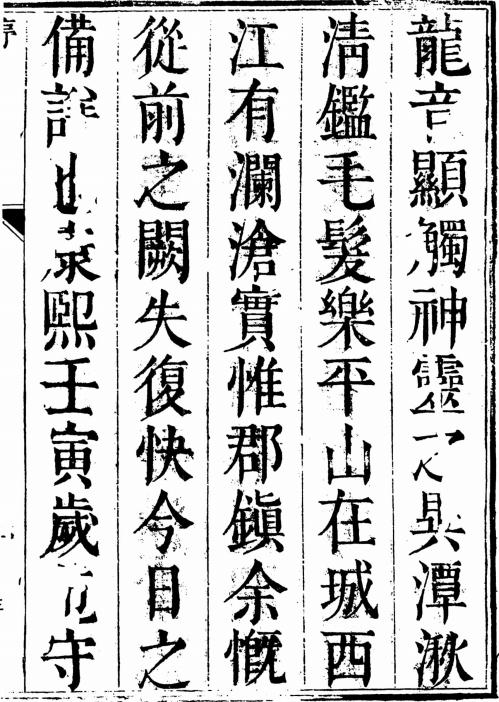 龍顯觸神靈潭湫
清鑑毛髮樂平山在城西
江有瀾滄實惟郡鎮余慨
從前之闕失復快今日之
備康熙壬寅歲守